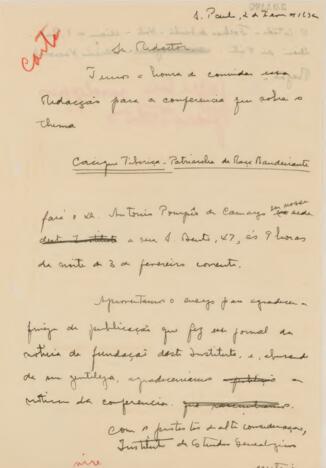 S. Paulo, 2 de Fev
Carta
Sr. Redactor
Temos a honra de convidar essa
Redacção para a conferencia que sobre o
thema
Cacique Tibiriçá - Patriarcha da Raça Bandeirante
fará o Dr. Antonio Pompêo de Camargo em nossa
séde
deste Instituto a rua S. Bento, 47, ás 9 horas
da noite de 3 de fevereiro corrente.
Aproveitamos o ensejo para agradecer a
fineza da publicação que fez seu jornal da
noticia da fundação deste Instituto, e, abusando
de sua gentileza, agradeceriamos a
noticia da conferencia.
Com os protestos de alta consideração,
Instituto de Estudos Genealogicos